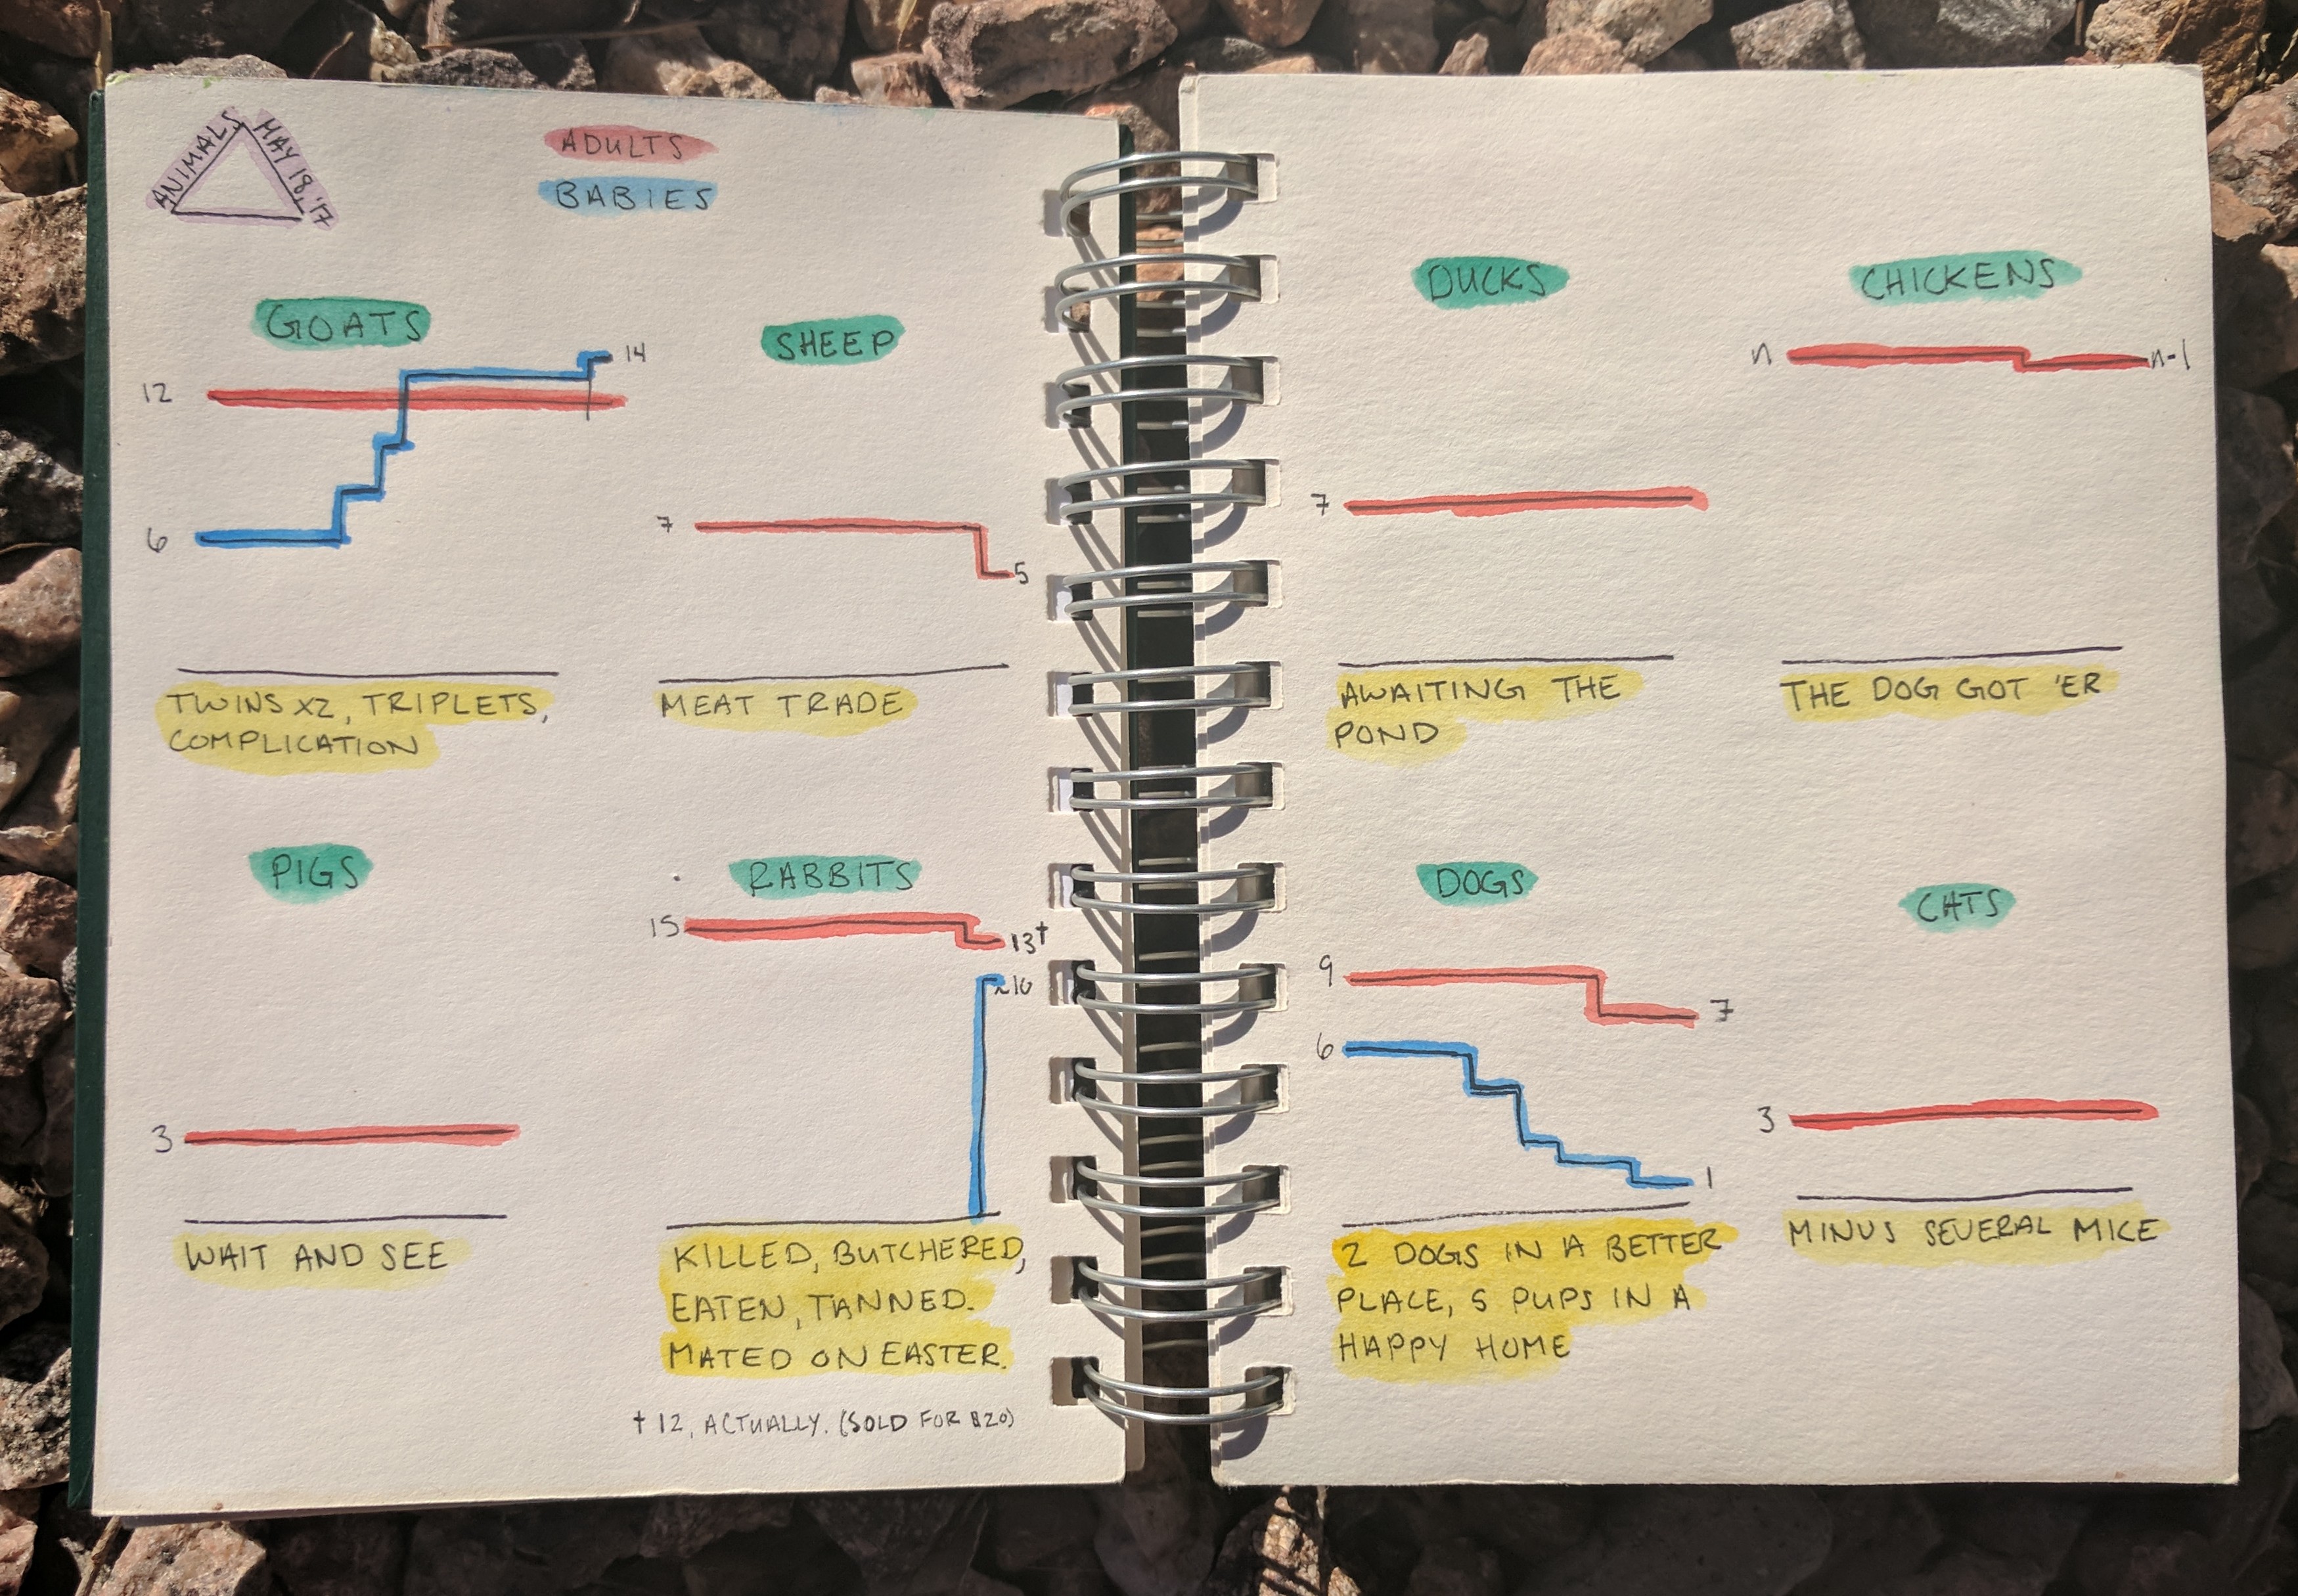 ANIMALS
MAY 18, '17
ADULTS
BABIES
GOATS
14
12
6
TWINS X2, TRIPLETS,
COMPLICATION
SHEEP
7
5
MEAT TRADE
PIGS
3
WAIT AND SEE
RABBITS
15
13†
~10
KILLED, BUTCHERED,
EATEN, TANNED.
MATED ON EASTER.
† 12, ACTUALLY. (SOLD FOR $20)
DUCKS
7
AWAITING THE
POND
CHICKENS
n
n-1
THE DOG GOT 'ER
DOGS
9
7
6
1
2 DOGS IN A BETTER
PLACE, 5 PUPS IN A
HAPPY HOME
CATS
3
MINUS SEVERAL MICE